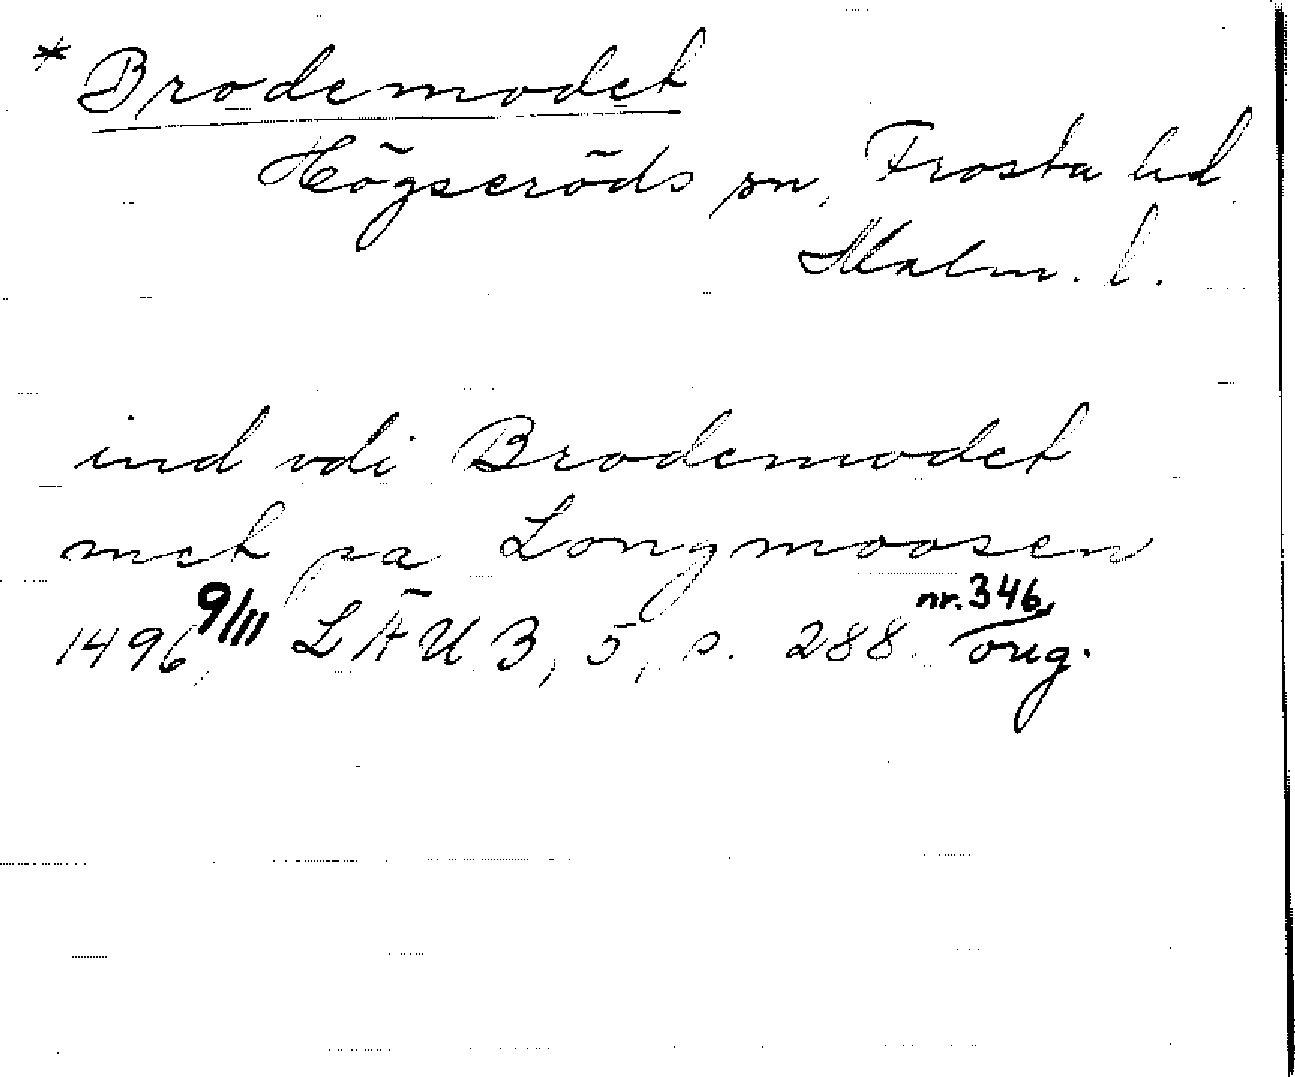 * Brodemodet
Högseröds sn, Frosta hd
Malm. l.
ind vdi Brodemodet
met pa Longmoosen
1496 9/11 LÄU 3, 5, s. 288. nr. 346 orig.